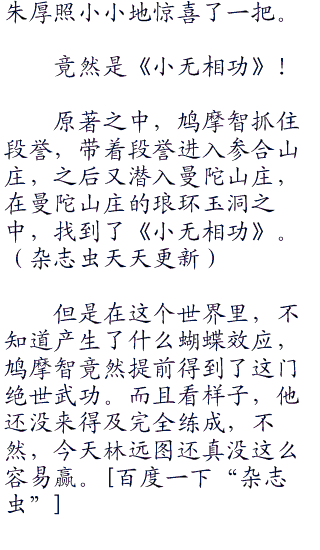 朱厚照小小地惊喜了一把。
竟然是《小无相功》！
原著之中，鸠摩智抓住
段誉，带着段誉进入参合山
庄，之后又潜入曼陀山庄，
在曼陀山庄的琅环玉洞之
中，找到了《小无相功》。
（杂志虫天天更新）
但是在这个世界里，不
知道产生了什么蝴蝶效应，
鸠摩智竟然提前得到了这门
绝世武功。而且看样子，他
还没来得及完全练成，不
然，今天林远图还真没这么
容易赢。[百度一下“杂志
虫”]